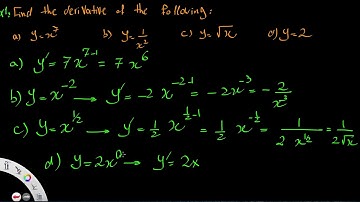 Find the derivative of the following:
a) y=x⁷ b) y=1/x² c) y=√x d) y=2
a) y'=7x⁷⁻¹ = 7x⁶
b) y=x⁻² → y'=-2x⁻²⁻¹ = -2x⁻³ = -2/x³
c) y=x^(1/2) → y'=1/2 x^(1/2-1) = 1/2 x^(-1/2) = 1/(2x^(1/2)) = 1/(2√x)
d) y=2x⁰ → y'=2x